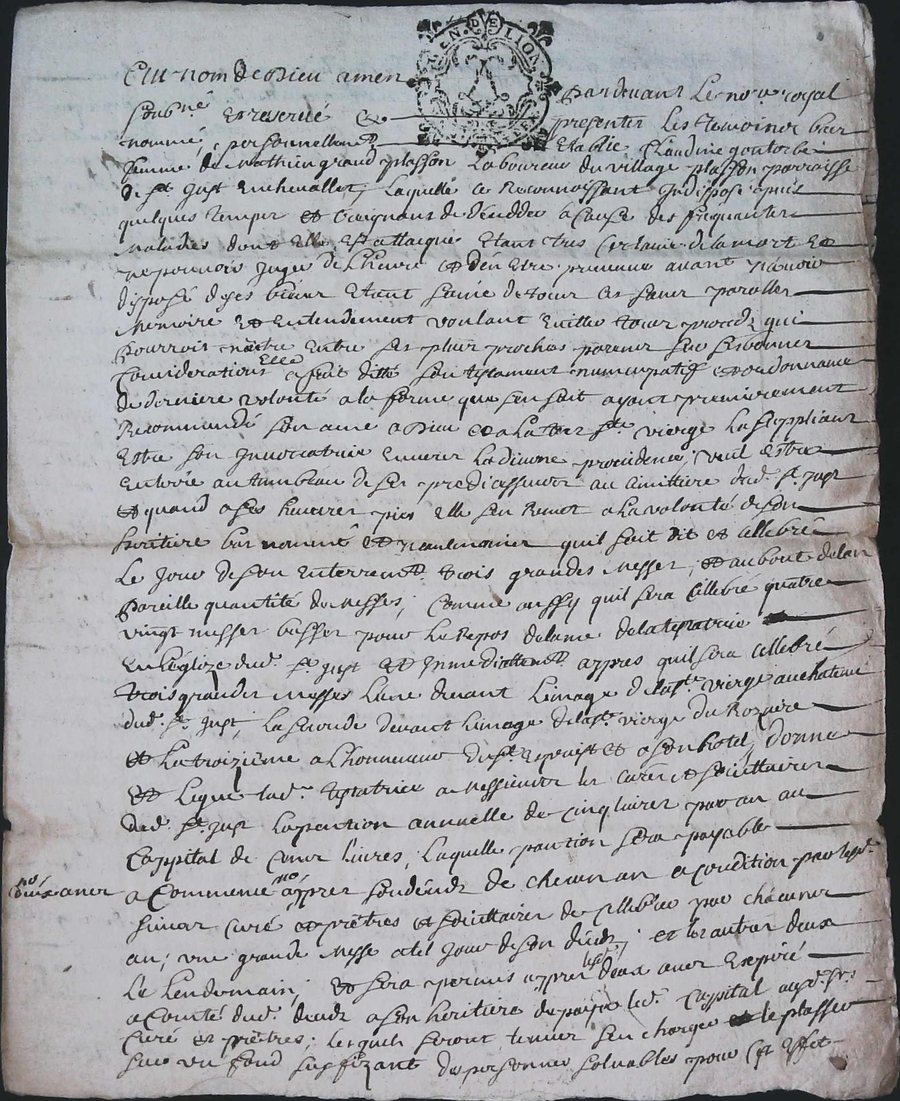 GEN. DE LION
Au nom de Dieu amen
Pardevant Le no.re royal
soub.né Et reservé &
presenter Les temoiner bas
nommé, personnellem.t
Etablie Claudine gontorbe
femme de Mathieu grand plasson Laboureur du village plasson parroisse
de s.t Just En chevallet, Laquelle ce Reconnoissant Indispose apuis
quelques temper et Craignant de décedder a cause des frequanter
Maladies dont Elle Est attacque Etant tres Certaine de la mort Et
ne pouvoir juger de L'heure et d'en Estre prevenue avant n'avoir
disposé de ses biens Etant saine de tour ces sener paroller
Memoire et Entendement voulant Eviller tour proced qui
pourroit naître Entre ses plus prochas parener sur ses bonner
Considerations Elle a fait ditte son testament nuncupatif et ordonnance
de derniere volonté a la forme que sen suit ayant premierement
Recommandé son ame a Dieu et a la tres s.te vierge La suppliant
Estre son Invocatrice Enverer La divine providence, veut Estre
Enterée au tumbeau de ser predicesseurer au cimittiere dud. s.t Just
et quand a ses heuvrer pies elle s'en Remet a la volonté de son
heritiere bas nommé et neanlmoinier quil soit dit et cellebré
Le jour de son Enterrem.t trois grandes Messer, et au bout de l'an
Pareille quantité de Messes; Comme aussy quil sera Cellebré quatre
vingt messer basser pour Le Repos de l'ame de la testatrice
En L'eglize dud. s.t Just et Immediattem.t appres quil sera cellebré
trois grander Messes L'une devant L'image de la s.te vierge au chateau
dud. s.t Just, La seconde devant L'image de la s.te vierge du Rozaire
et La troizième a L'honneur de s.t et a son hotel, donne
et Legue lad.e testatrice a Messieurer les curer et societtairer
dud. s.t Just La pention annuelle de cinq livrer par an au
Cappital de Cent Livres, Laquelle pantion sera payable
no
deux aner
a Commence no appres son déced de chacun an a condition par lesd.
sieurer Curé et prêtres et societtairer de cellebrer par chácuner
an; une grande Messe a tel jour de son déced; et Les autrer deux
Le Lendemain, et sera permis apprer les deux aner Expiré
a Comté dud. deced a son heritiere de payer led. Cappital auxd. srs
Curé et prêtres; Lesquels seront tenuer s'en charger et le plasser
sur un fond suffizant des personner solvables pour cest Effet